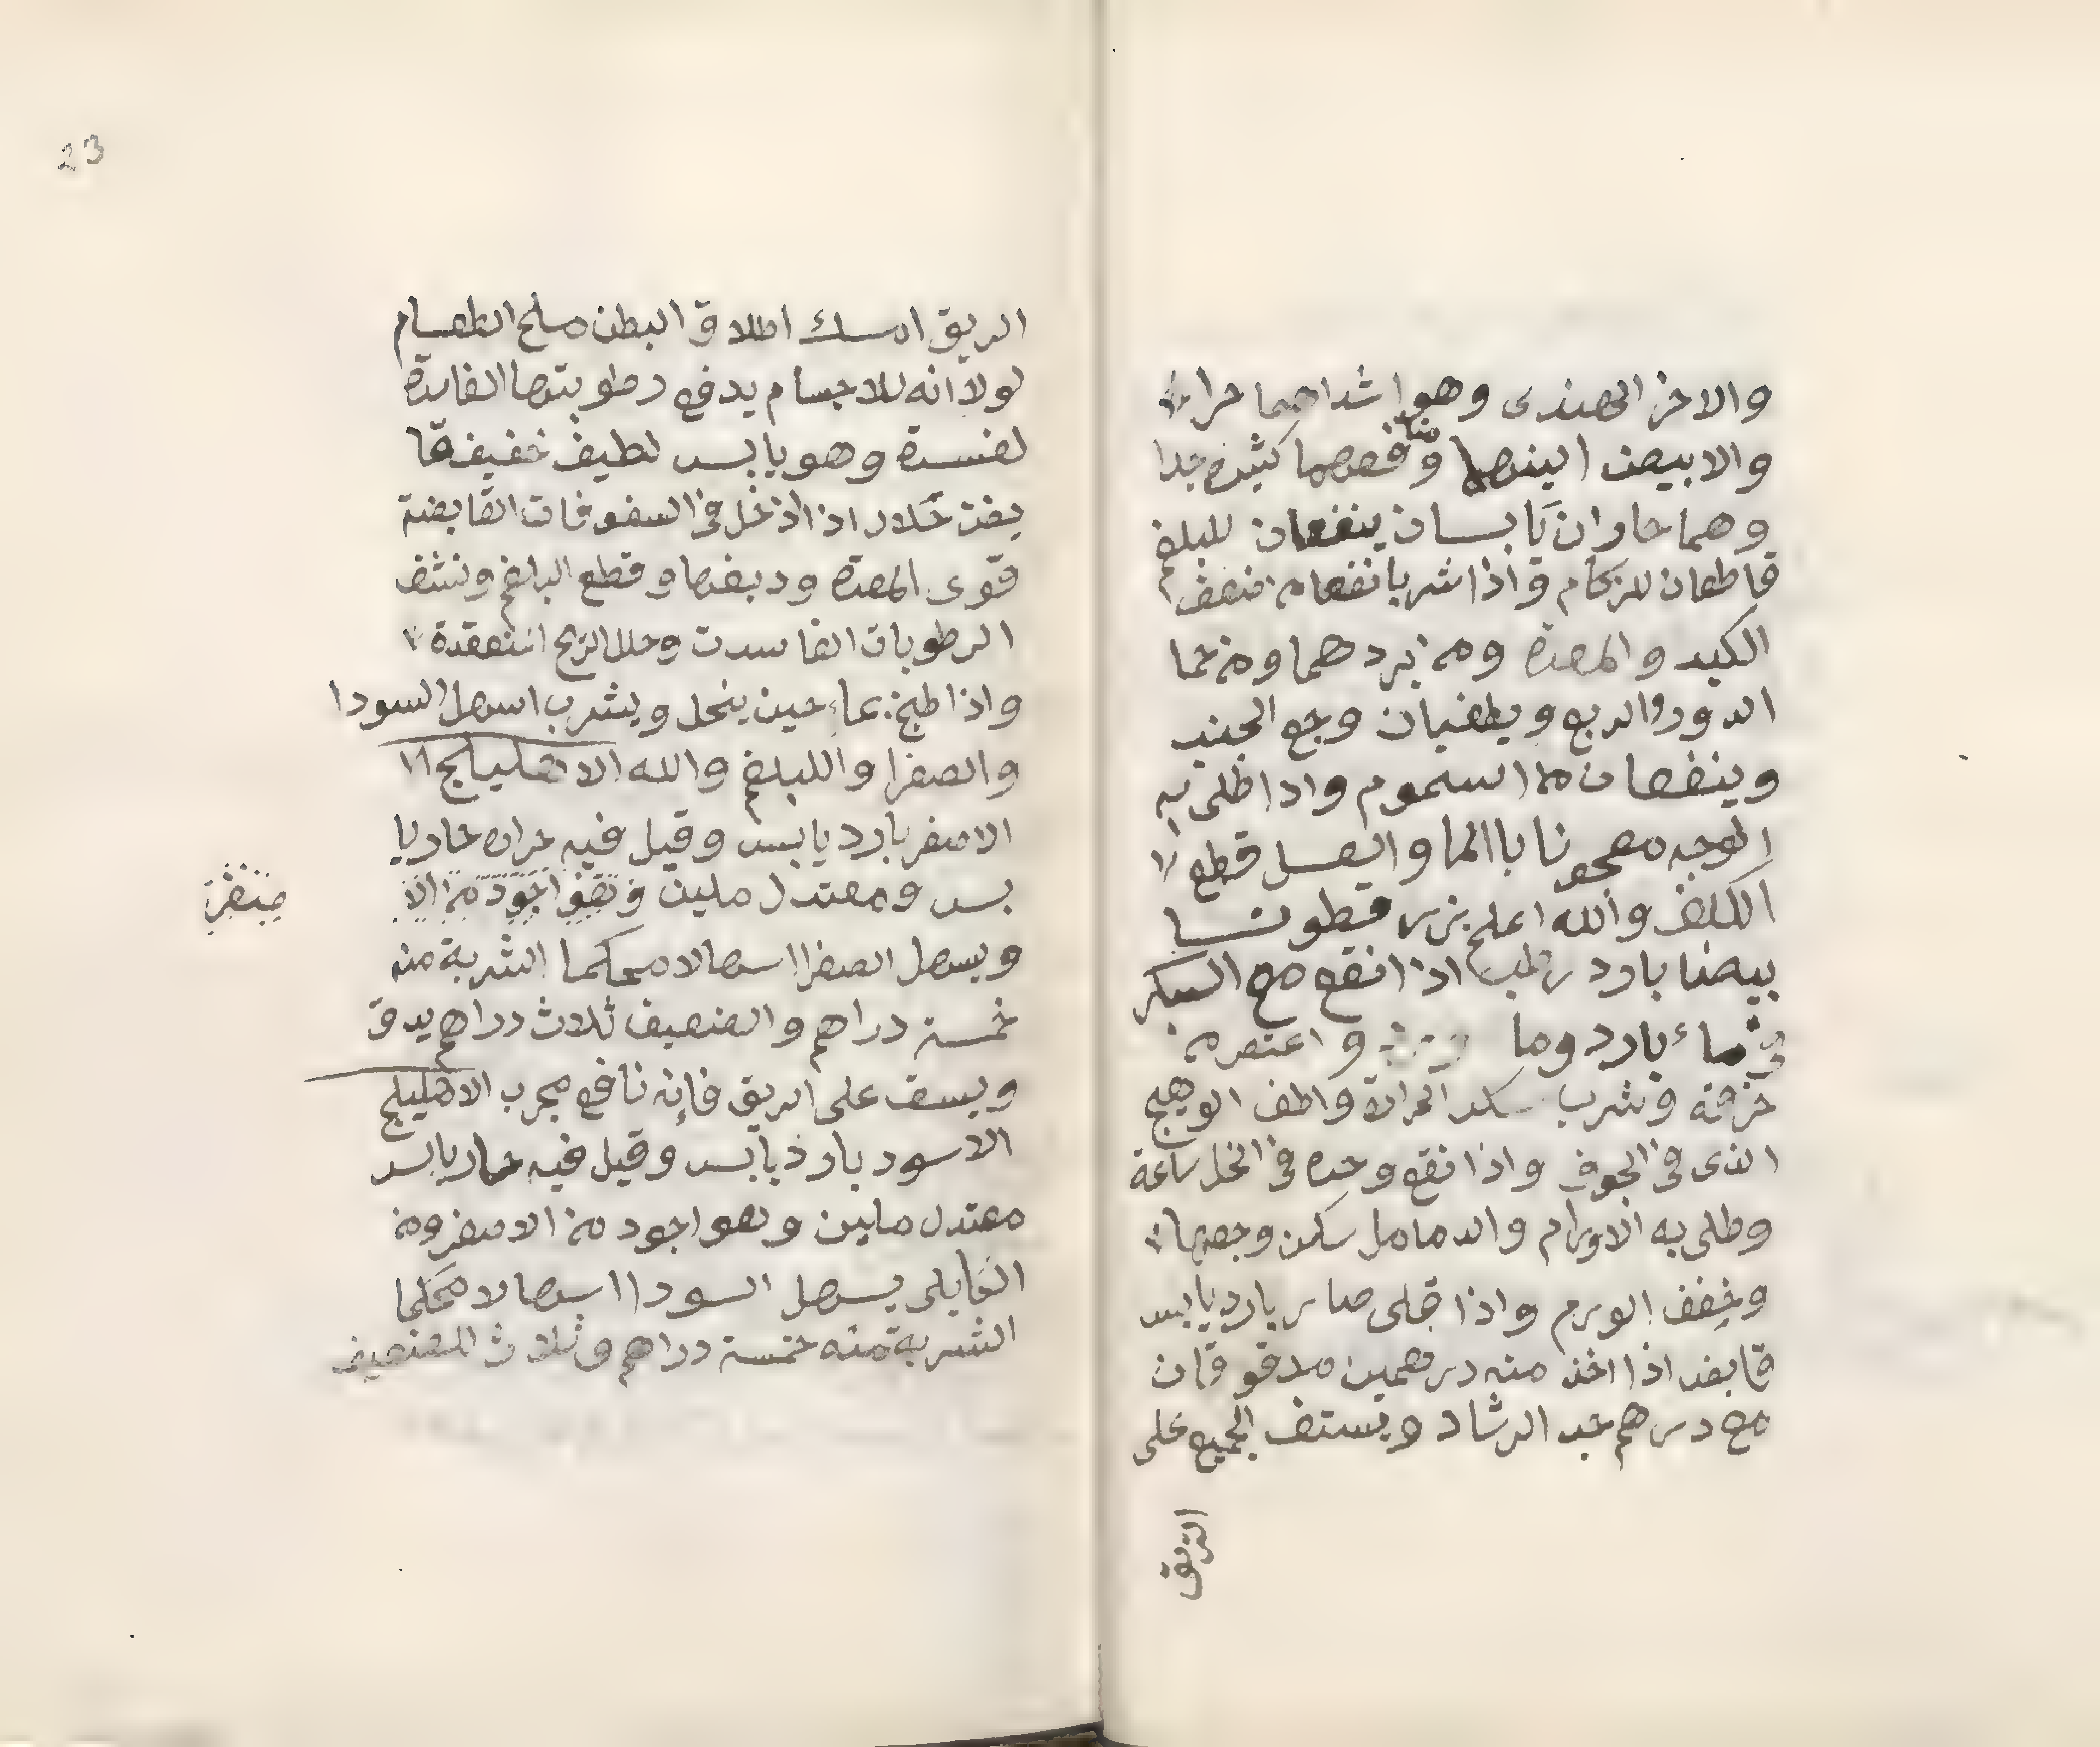 والاخر الهندى وهو اشداهما حراره
والابيض الينهما ومنافعهما كثيره جدا
وهما حاران يابسان ينفعان للبلغم
قاطعان للزكام واذا شربا نفعا من ضعف
الكبد والمعدة ومن بردهما ومن حما
الدور والربع ويطفيان وجع الجنب
وينفعان من السموم واذا طلى به
الوجه معجونا باالما والعسل قطع
الكلف والله اعلم بزر قطونا
بيضا بارد رطب اذا انقع مع السكر
فى ماء بارد وما واعتصر من
خرقة وشرب سكن الحرارة واطف الوهيج
الذى فى الجوف واذا نقع وحده فى الخل ساعة
وطلى به الاورام والدمامل سكن وجعها
وخفف الورم واذا قلى صار بارد يابس
قابض اذا اخذ منه درهمين مدقوقان
مع درهم حب الرشاد ويستف الجميع على
الريق
23
الريق امسك اطلاق البطن ملح الطعام
لولا انه للاجسام يدفع رطوبتها الفايدة
لفسدة وهو يابس لطيف خفيف
اذا ادخل فى السفوفات القابضة
قوى المعدة ودبغها وقطع البلغم ونشف
الرطوبات الفاسدت وحلل الريح انتعقدة
واذا طبخ بماء حين ينحل ويشرب اسهل السودا
والصفرا واللبلغم والله الاهليلج
الاصفر بارد يابس وقيل فيه حراره حار يا
بس ومعتدل ملين وهو اجود من الا
ويسهل الصفرا اسهالا محكما الشربة منه
خمسة دراهم والضعيف ثلاث دراهم يدق
ويسف على الريق فإنه نافع مجرب الاهليلج
الاسود بارد يابس وقيل فيه حار يابس
معتدل ملين وهو اجود من الاصفر ومن
الكابلى يسهل السودا اسهالا محكما
الشربة منه خمسة دراهم وثلاث الضعيف